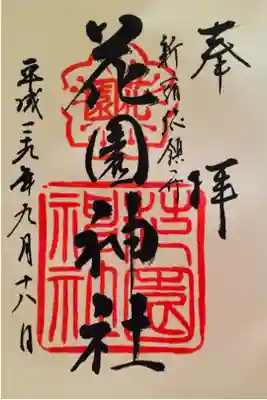 奉拝
新宿総鎮守
花園神社
平成二九年九月十八日
花園
花園神社